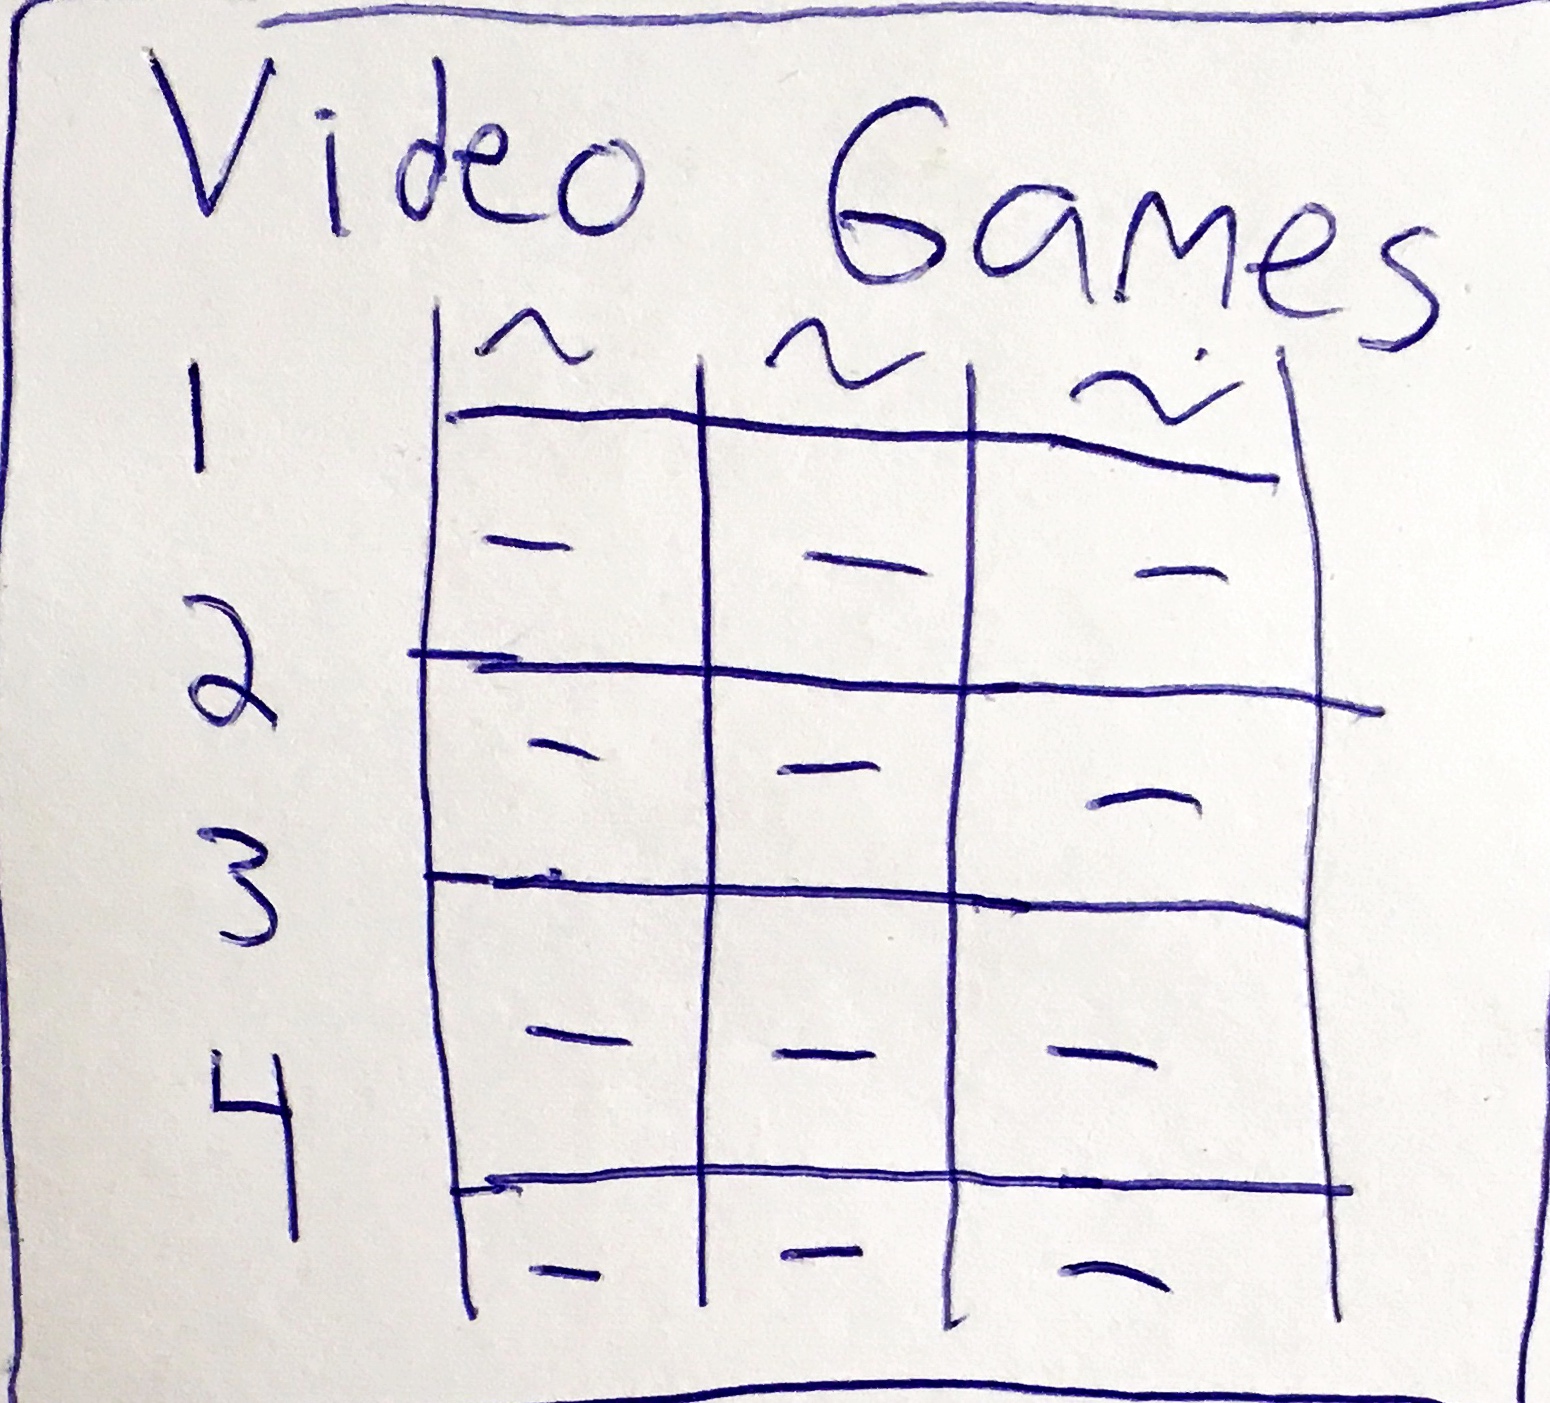 Video Games
1
2
3
4